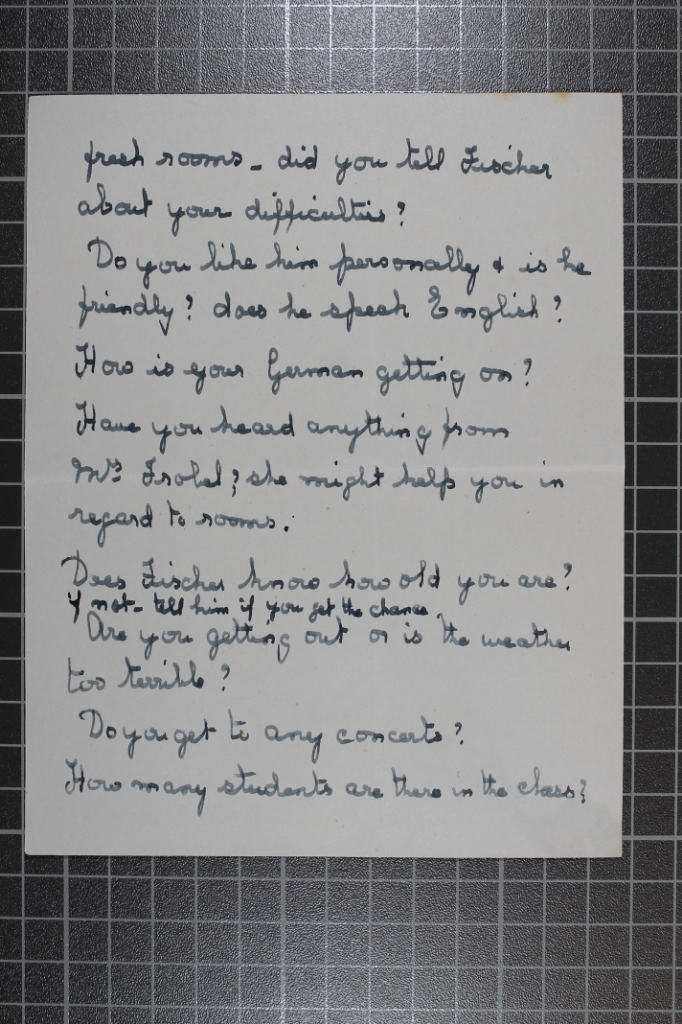 fresh rooms - did you tell Fischer
about your difficulties?
Do you like him personally & is he
friendly? does he speak English?
How is your German getting on?
Have you heard anything from
Mrs Frobel? she might help you in
regard to rooms.
Does Fischer know how old you are?
If not - tell him if you get the chance.
Are you getting out or is the weather
too terrible?
Do you get to any concerts?
How many students are there in the class?